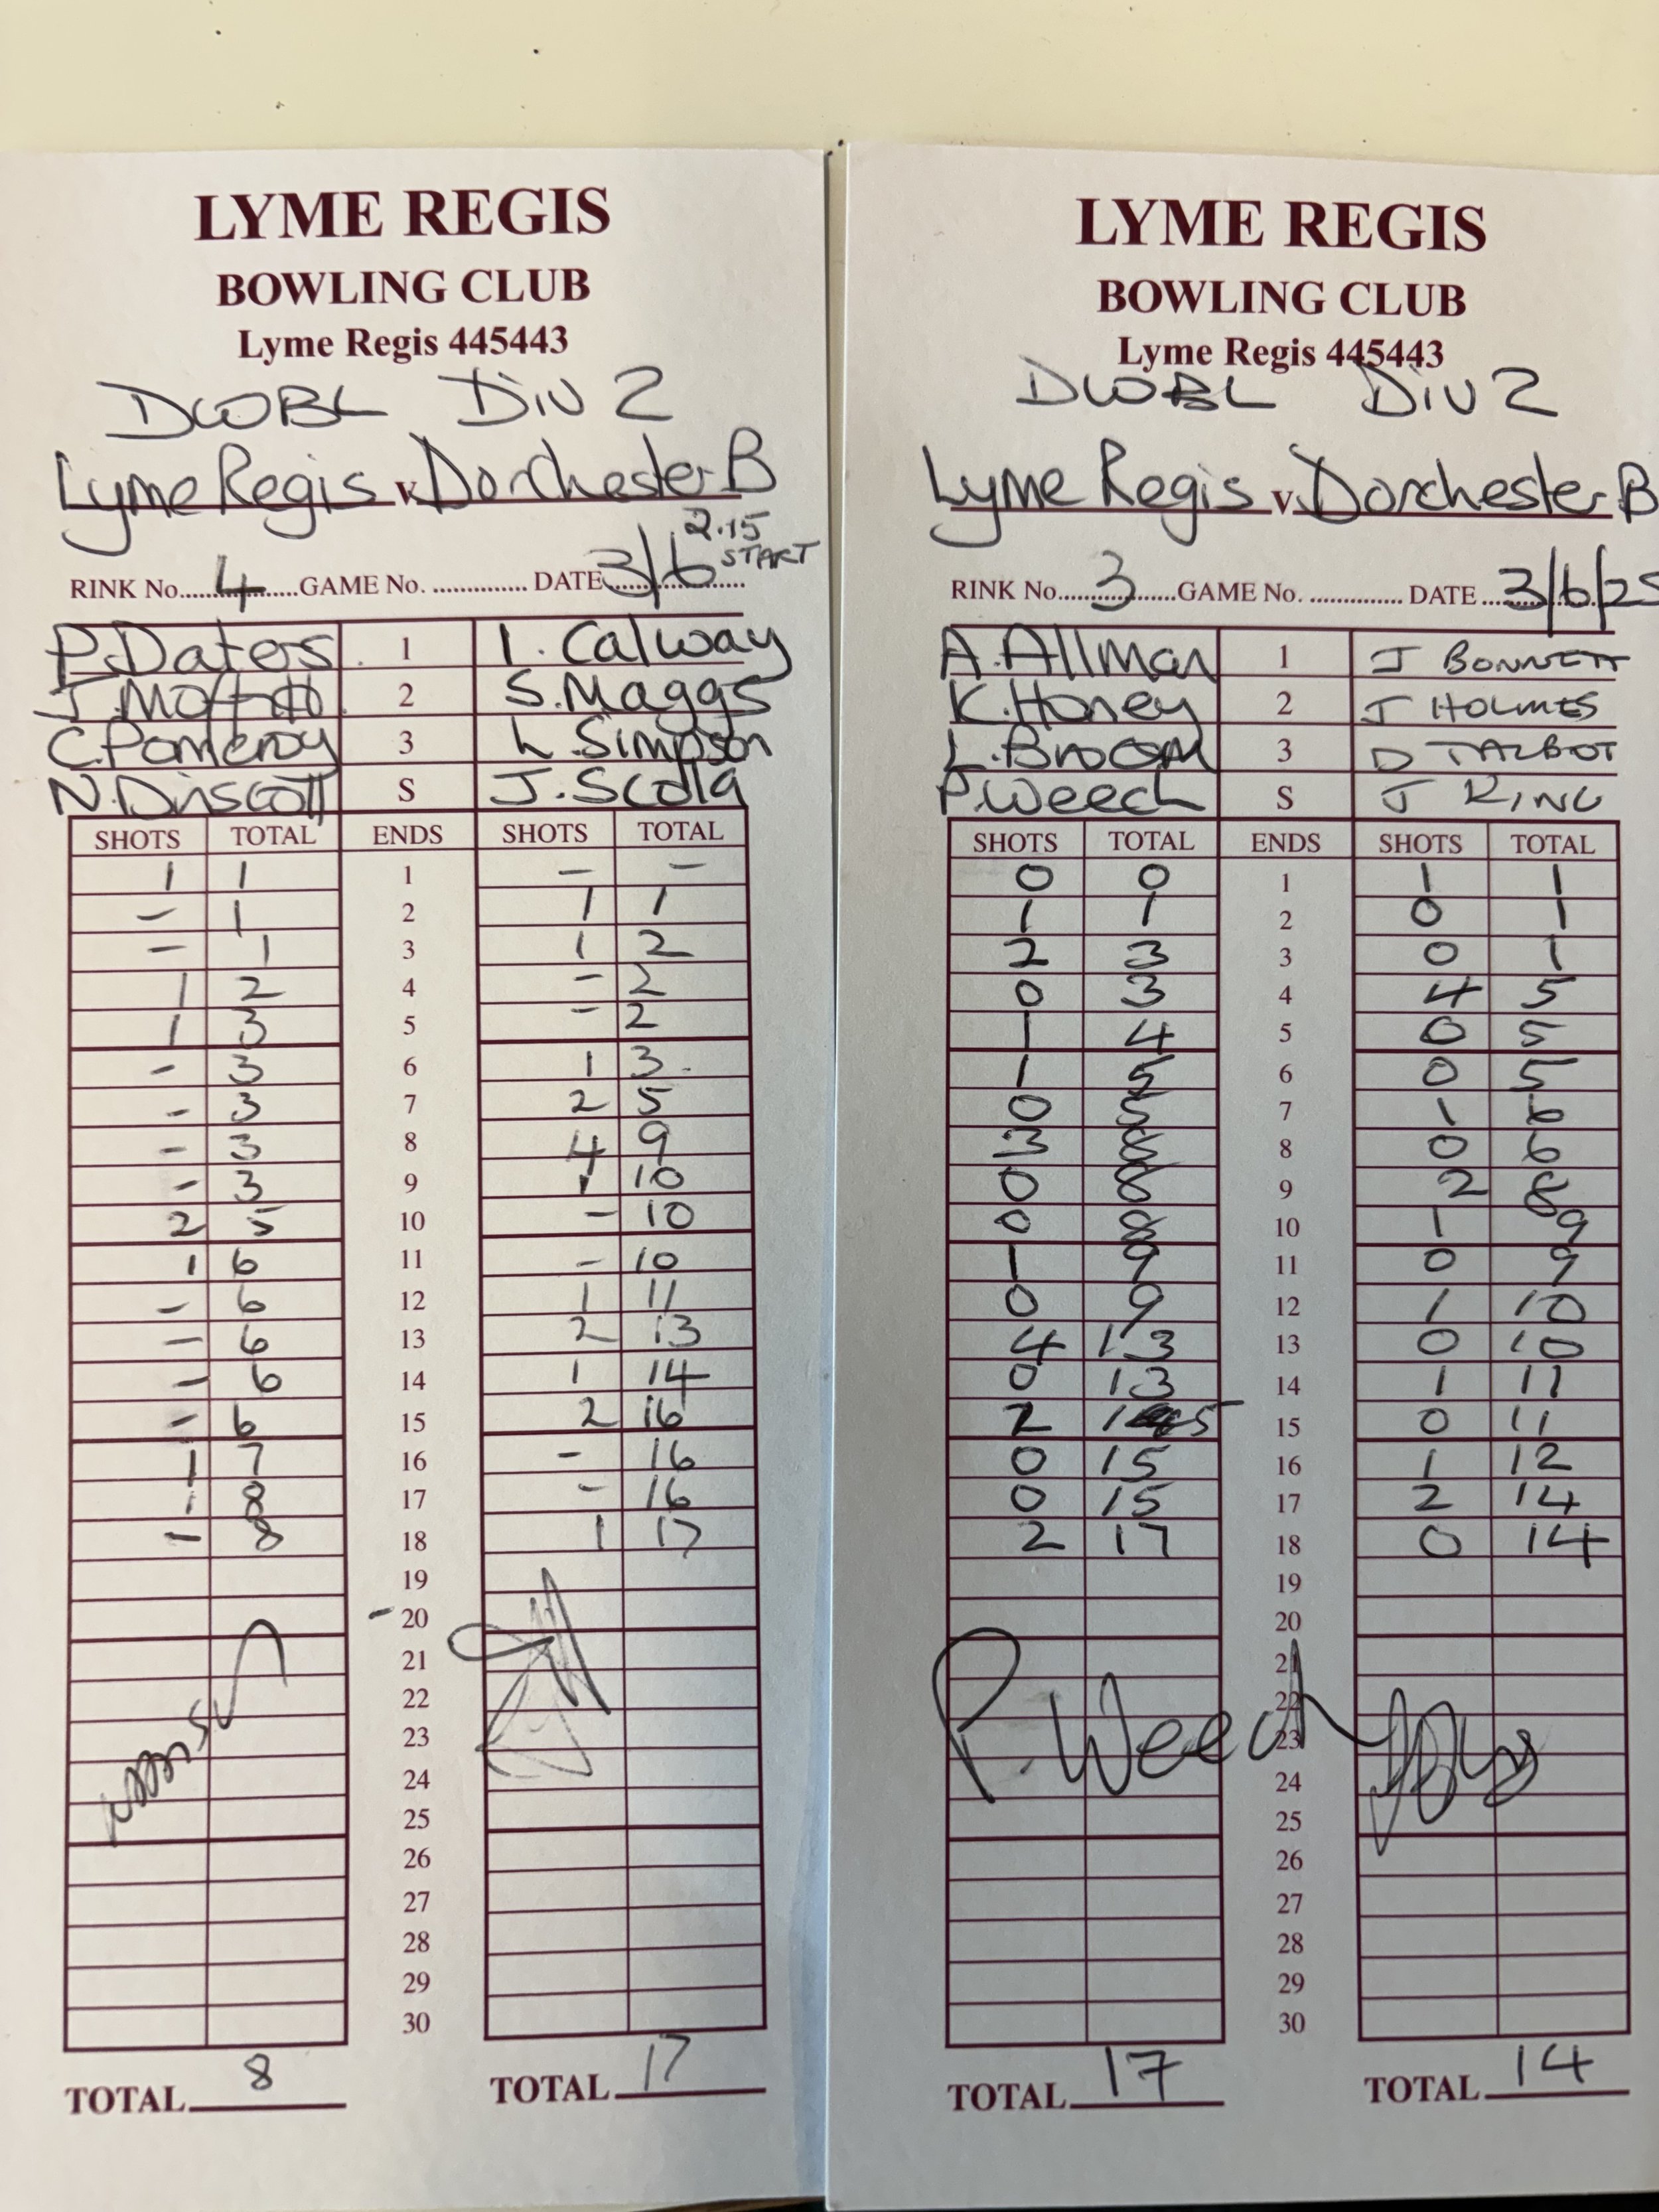 LYME REGIS
BOWLING CLUB
Lyme Regis 445443
DWBL Div 2
Lyme Regis v. Dorchester B
2.15
START
RINK No. 4 GAME No. DATE 3/6
P. Daters 1 I. Calway
J. 2 S. Maggs
C. Pomeroy 3 L. Simpson
N. Driscoll S J. Scola
SHOTS TOTAL ENDS SHOTS TOTAL
1 1 1 - -
- 1 2 1 1
- 1 3 1 2
1 2 4 - 2
1 3 5 - 2
- 3 6 1 3
- 3 7 2 5
- 3 8 4 9
- 3 9 1 10
2 5 10 - 10
1 6 11 - 10
- 6 12 1 11
- 6 13 2 13
- 6 14 1 14
- 6 15 2 16
1 7 16 - 16
1 8 17 - 16
- 8 18 1 17
19
- 20
21
22
23
24
25
26
27
28
29
30
TOTAL 8 TOTAL 17
LYME REGIS
BOWLING CLUB
Lyme Regis 445443
DWBL Div 2
Lyme Regis v. Dorchester B
RINK No. 3 GAME No. DATE 3/6/25
A. Allman 1 J BONNETT
K. Honey 2 J HOLMES
L. Broom 3 D TALBOT
P. Weech S J KING
SHOTS TOTAL ENDS SHOTS TOTAL
0 0 1 1 1
1 1 2 0 1
2 3 3 0 1
0 3 4 4 5
1 4 5 0 5
1 5 6 0 5
0 5 7 1 6
3 8 8 0 6
0 8 9 2 8
0 8 10 1 9
1 9 11 0 9
0 9 12 1 10
4 13 13 0 10
0 13 14 1 11
2 15 15 0 11
0 15 16 1 12
0 15 17 2 14
2 17 18 0 14
19
20
21
22
P. Weech 23
24
25
26
27
28
29
30
TOTAL 17 TOTAL 14